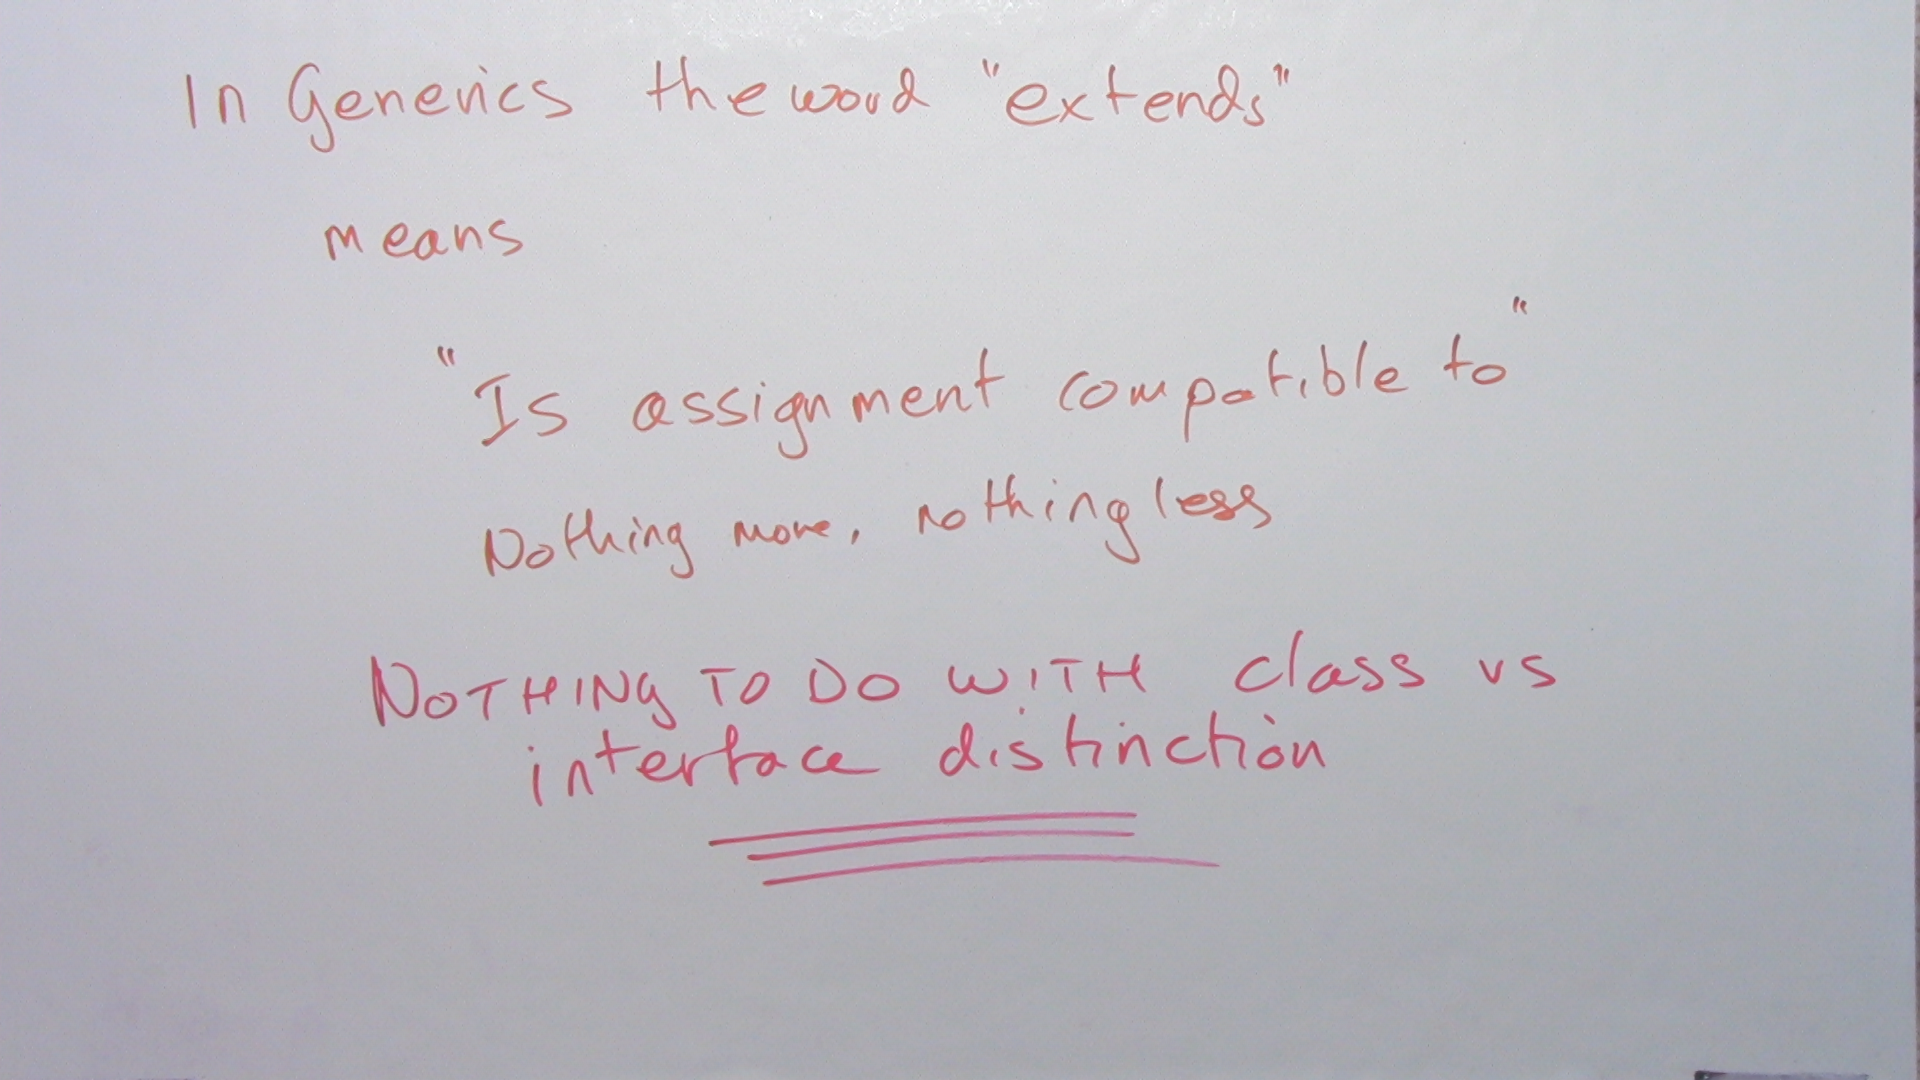 In Generics the word "extends"
means
"Is assignment compatible to"
Nothing more, nothing less
NOTHING TO DO WITH class vs
interface distinction